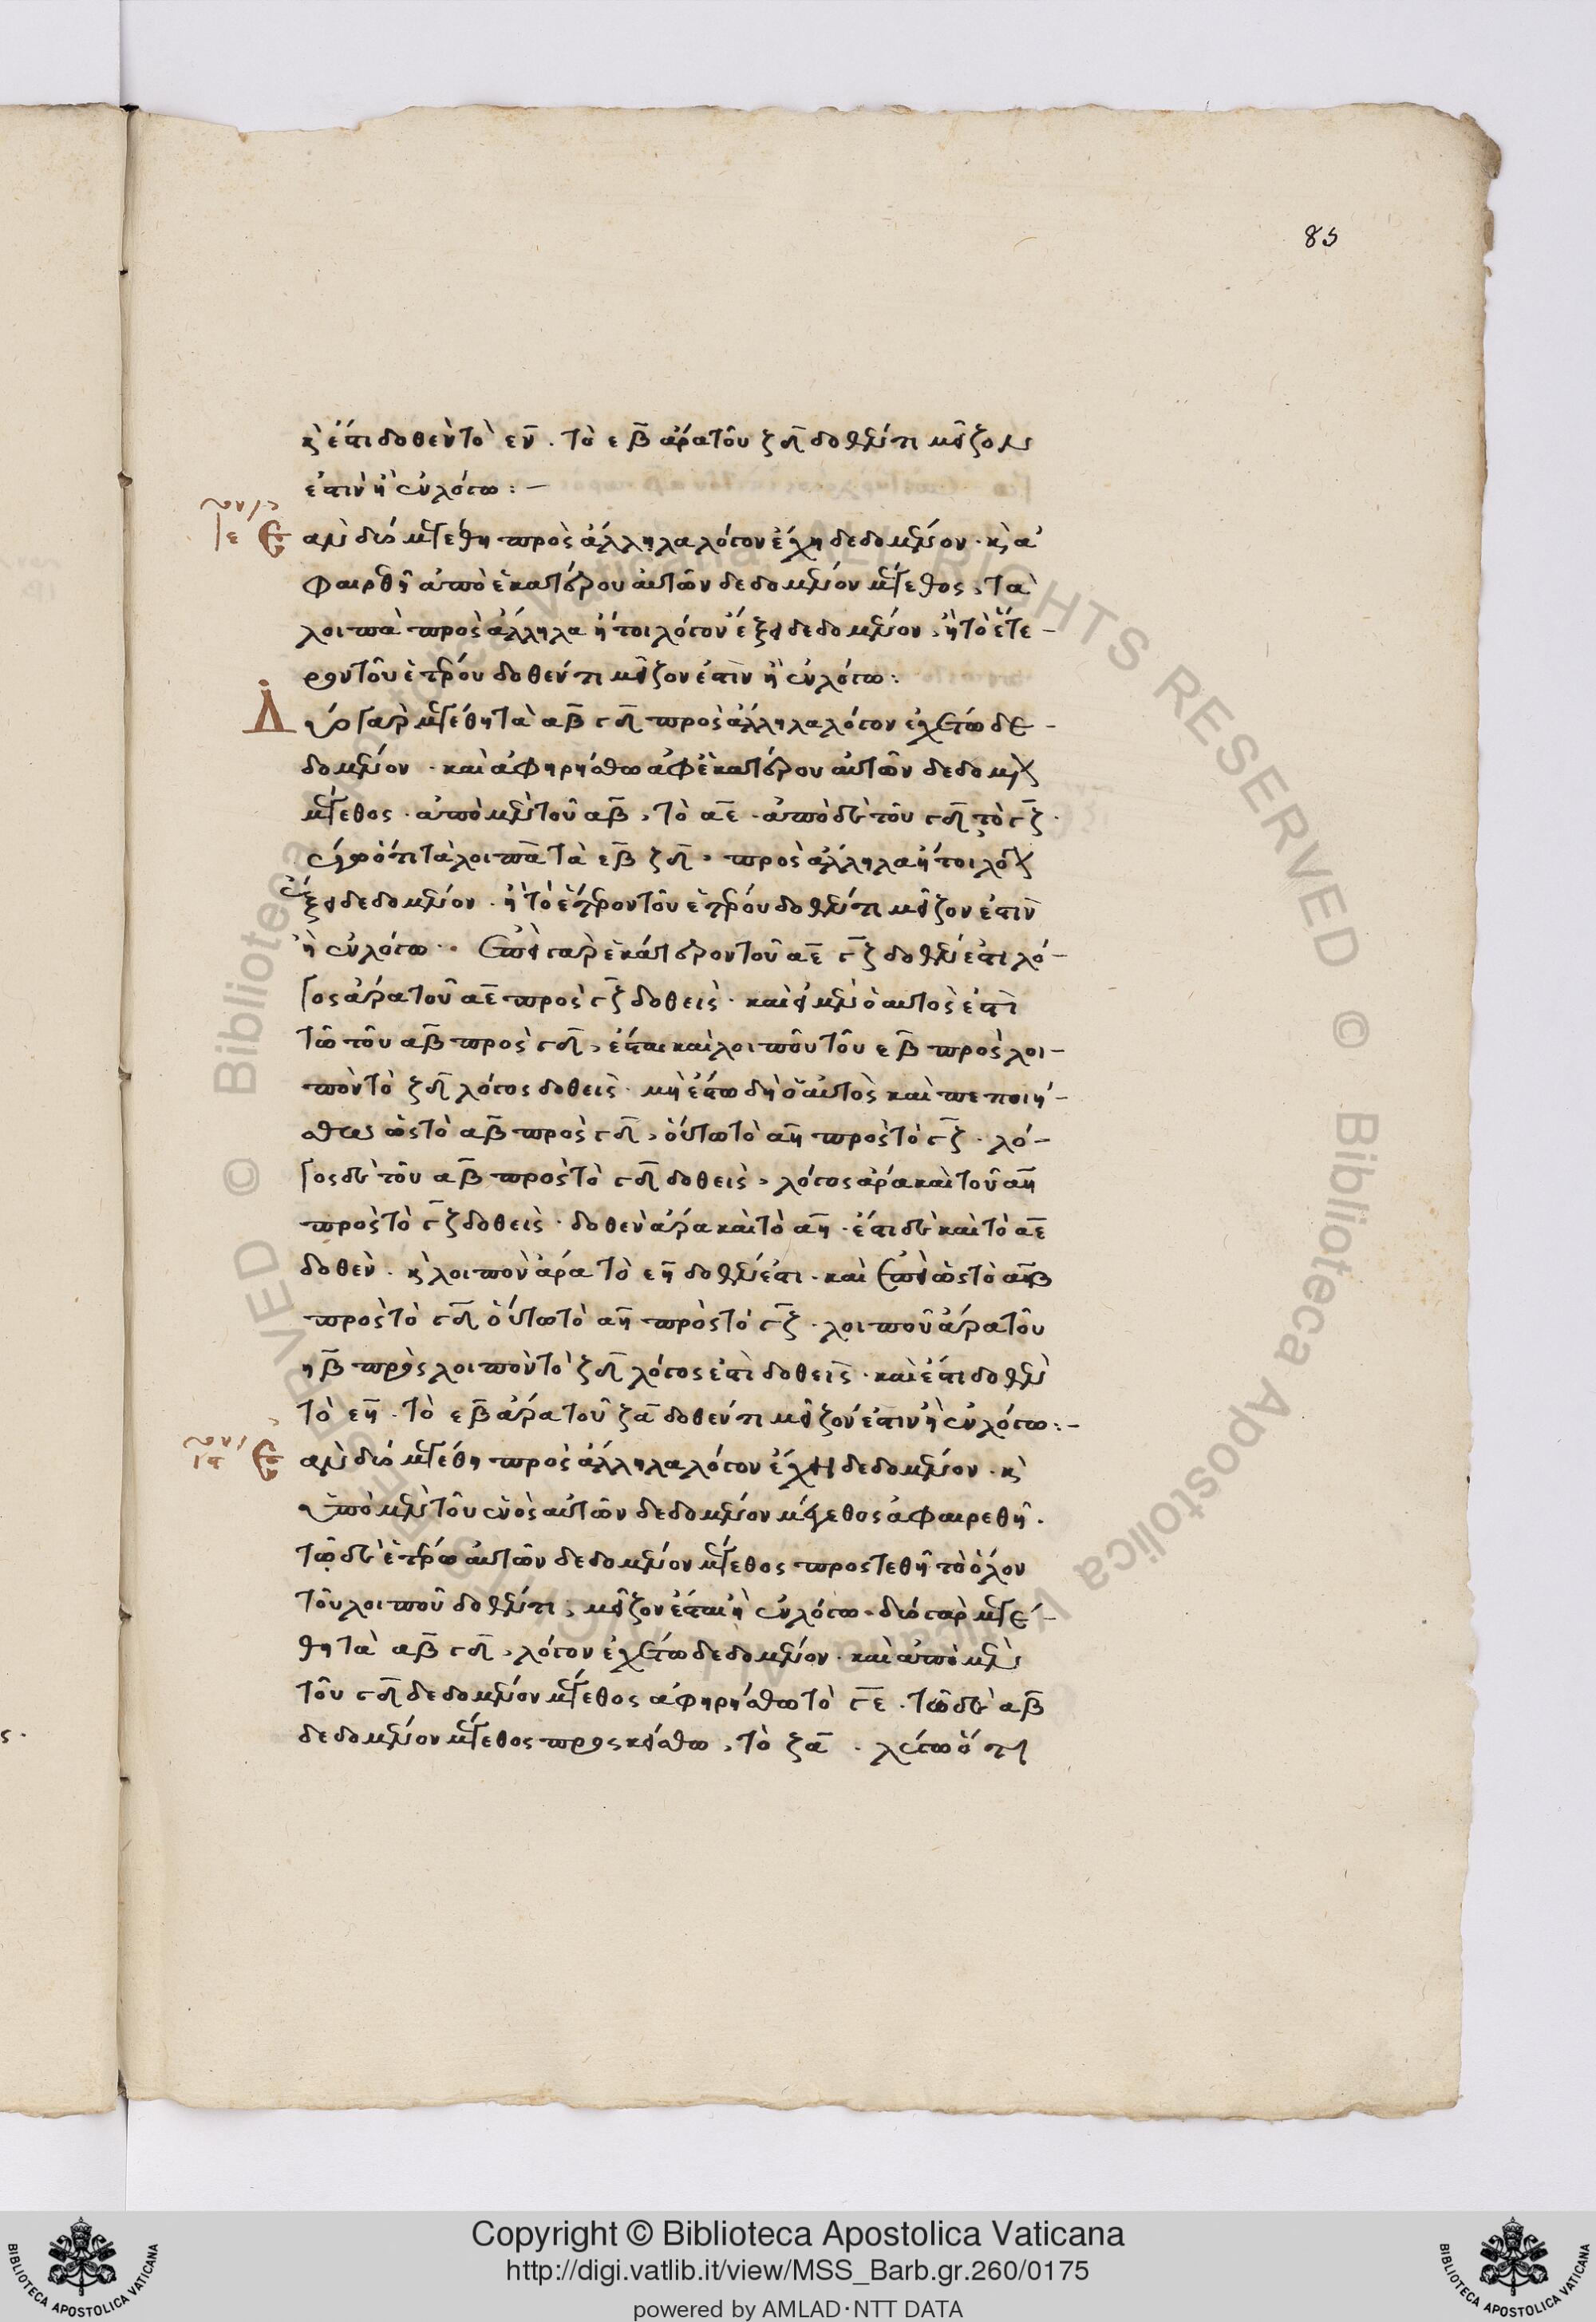 85
κ(αὶ) ἔστι δοθὲν τὸ εη. τὸ εβ ἄρα τοῦ ζδ δοθέντι μεῖζόν
ἐστιν ἢ ἐν λόγω:—
ιε Ἐὰν δύο μεγέθη πρὸς ἄλληλα λόγον ἔχη δεδομένον. κ(αὶ) ἀ
φαιρθῆ ἀπὸ ἑκατέρου αὐτῶν δεδομένον μέγεθος, τὰ
λοιπὰ πρὸς ἄλληλα ἤτοι λόγον ἕξει δεδομένον, ἢ τὸ ἕτε-
ρον τοῦ ἑτέρου δοθέντι μεῖζον ἐστὶν ἢ ἐν λόγω:
Δύο γὰρ μεγέθη τὰ αβ γδ πρὸς ἄλληλα λόγον ἐχέτω δε-
δομένον. καὶ ἀφηρήσθω ἀφ' ἑκατέρου αὐτῶν δεδομένον
μέγεθος. ἀπὸ μὲν τοῦ αβ, τὸ αε. ἀπὸ δὲ τοῦ γδ τὸ γζ.
λέγω ὅτι τὰ λοιπὰ τὰ εβ ζδ, πρὸς ἄλληλα ἤτοι λόγον
ἕξει δεδομένον. ἢ τὸ ἕτερον τοῦ ἑτέρου δοθέντι μεῖζον ἐστὶν
ἢ ἐν λόγω. Ἐπεὶ γὰρ ἑκάτερον τοῦ αε γζ δοθέν ἐστι λό-
γος ἄρα τοῦ αε πρὸς γζ δοθεὶς. καὶ εἰ μὲν ὁ αὐτὸς ἐστὶ
τῶ τοῦ αβ πρὸς γδ, ἔσται καὶ λοιποῦ τοῦ εβ πρὸς λοι-
πὸν τὸ ζδ λόγος δοθεὶς. μὴ ἔστω δὴ ὁ αὐτὸς καὶ πεποιή-
σθω ὡς τὸ αβ πρὸς γδ, οὕτω τὸ αη πρὸς τὸ γζ. λό-
γος δὲ τοῦ αβ πρὸς τὸ γδ δοθεὶς, λόγος ἄρα καὶ τοῦ αη
πρὸς τὸ γζ δοθεὶς. δοθὲν ἄρα καὶ τὸ αη. ἔστι δὲ καὶ τὸ αε
δοθὲν. κ(αὶ) λοιπὸν ἄρα τὸ εη δοθέν ἐστι. καὶ ἐπεὶ ὡς τὸ αηβ
πρὸς τὸ γδ οὕτω τὸ αη πρὸς τὸ γζ. λοιποῦ ἄρα τοῦ
ηβ πρὸς λοιπὸν τὸ ζδ λόγος ἐστὶ δοθεὶς. καὶ ἔστι δοθὲν
τὸ εη. τὸ εβ ἄρα τοῦ ζδ δοθέντι μεῖζόν ἐστιν ἢ ἐν λόγω:—
ις Ἐὰν δύο μεγέθη πρὸς ἄλληλα λόγον ἔχη δεδομένον. κ(αὶ)
ἀπὸ μὲν τοῦ ἑνὸς αὐτῶν δεδομένον μέγεθος ἀφαιρεθῆ.
τῶ δὲ ἑτέρω αὐτῶν δεδομένον μέγεθος προστεθῆ τὸ ὅλον
τοῦ λοιποῦ δοθέντι, μεῖζον ἔσται ἢ ἐν λόγω. δύο γὰρ μεγέ-
θη τὰ αβ γδ, λόγον ἐχέτω δεδομένον. καὶ ἀπὸ μὲν
τοῦ γδ δεδομένον μέγεθος ἀφηρήσθω τὸ γε. τῶ δὲ αβ
δεδομένον μέγεθος προσκείσθω, τὸ ζα. λέγω ὅτι
ς.
© Biblioteca Apostolica Vaticana ALL RIGHTS RESERVED
Copyright © Biblioteca Apostolica Vaticana
http://digi.vatlib.it/view/MSS_Barb.gr.260/0175
powered by AMLAD·NTT DATA
BIBLIOTECA APOSTOLICA VATICANA
BIBLIOTECA APOSTOLICA VATICANA